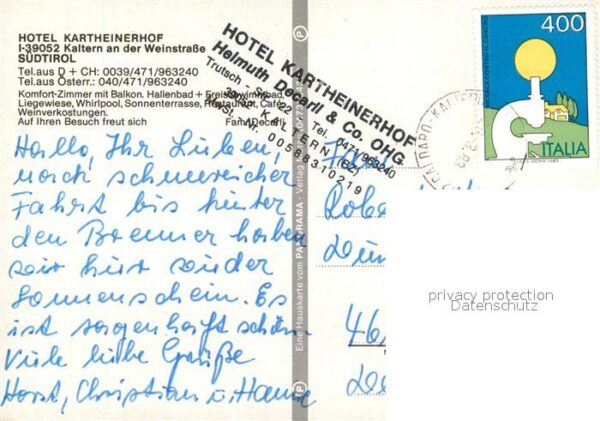 HOTEL KARTHEINERHOF
I-39052 Kaltern an der Weinstraße
SÜDTIROL
Tel.aus D + CH: 0039/471/963240
Tel.aus Österr.: 040/471/963240
Komfort-Zimmer mit Balkon. Hallenbad + Freischwimmbad,
Liegewiese, Whirlpool, Sonnenterrasse, Restaurant, Café
Weinverkostungen.
Auf Ihren Besuch freut sich Fam. Decarli
HOTEL KARTHEINERHOF
Helmuth Decarli & Co. OHG
Trutsch 22 Tel. 0471/963240
KALTERN (BZ)
Nr. 00588310219
Hallo, Ihr Lieben,
nach schwieriger
Fahrt bis hinter
den Brenner haben
wir hier wieder
Sonnenschein. Es
ist sagenhaft schön.
Viele liebe Grüße
Horst, Christian u. Hanne
Eine Hauskarte vom PANORAMA-Verlag
400
ITALIA
46
privacy protection
Datenschutz